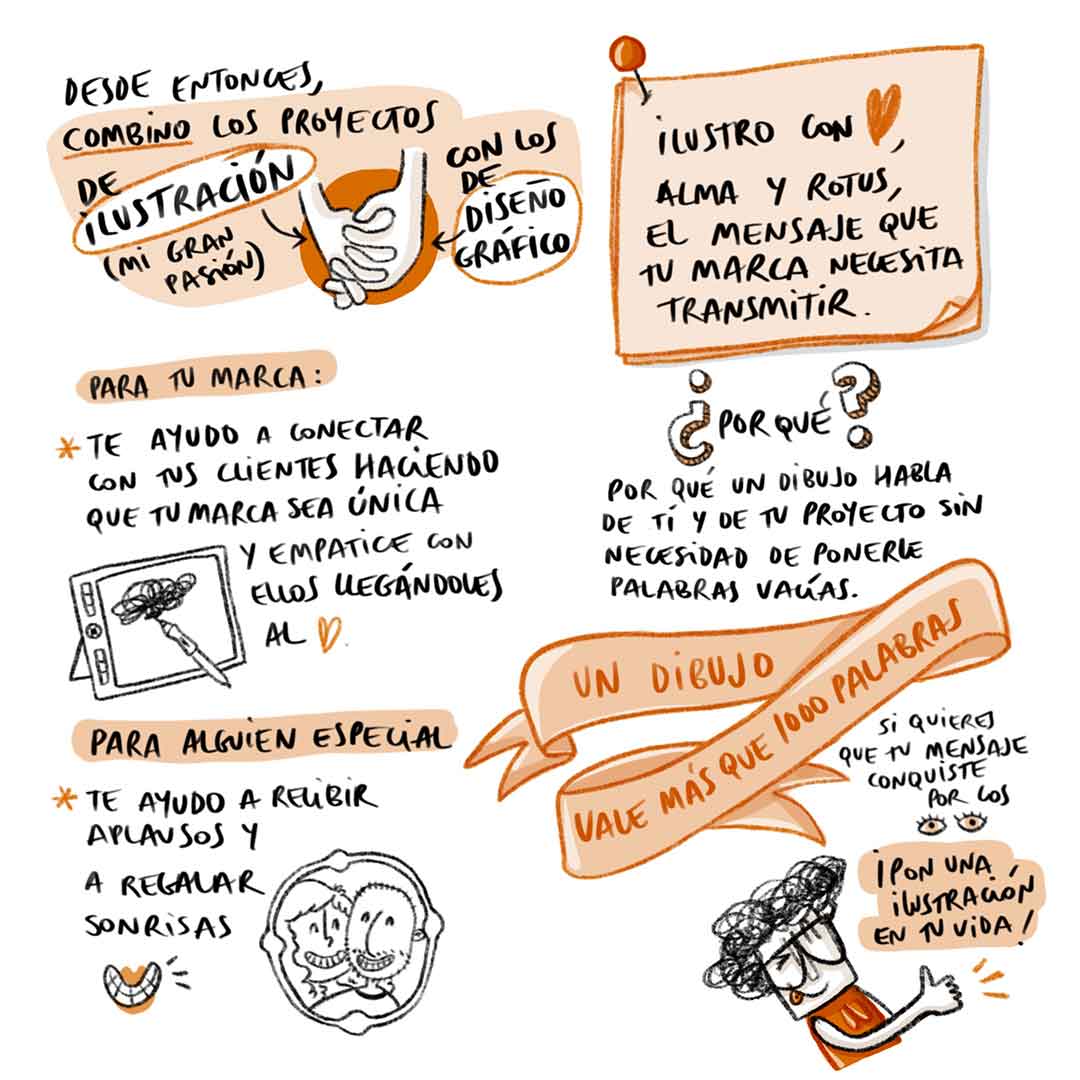 DESDE ENTONCES,
COMBINO LOS PROYECTOS
DE
ILUSTRACIÓN
(MI GRAN
PASIÓN)
CON LOS
DE
DISEÑO
GRÁFICO
ILUSTRO CON ,
ALMA Y ROTUS,
EL MENSAJE QUE
TU MARCA NECESITA
TRANSMITIR.
PARA TU MARCA:
* TE AYUDO A CONECTAR
CON TUS CLIENTES HACIENDO
QUE TU MARCA SEA ÚNICA
Y EMPATICE CON
ELLOS LLEGÁNDOLES
AL .
¿PORQUÉ?
POR QUÉ UN DIBUJO HABLA
DE TÍ Y DE TU PROYECTO SIN
NECESIDAD DE PONERLE
PALABRAS VACÍAS.
UN DIBUJO
VALE MÁS QUE 1000 PALABRAS
PARA ALGUIEN ESPECIAL
* TE AYUDO A RECIBIR
APLAUSOS Y
A REGALAR
SONRISAS
SI QUIERES
QUE TU MENSAJE
CONQUISTE
POR LOS
¡PON UNA
ILUSTRACIÓN
EN TU VIDA!